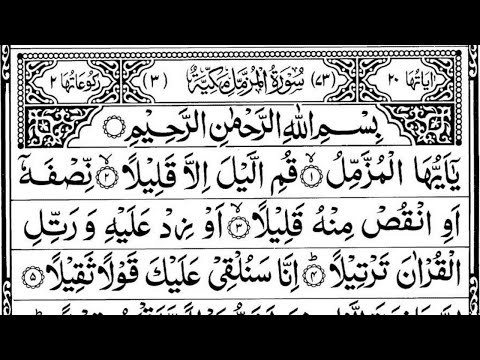 اٰيَاتُهَا ٢٠ (٧٣) سُوْرَةُ الْمُزَّمِّلِ مَكِّيَّةٌ (٣) رُكُوْعَاتُهَا ٢
بِسْمِ اللّٰهِ الرَّحْمٰنِ الرَّحِيْمِ
يٰۤاَيُّهَا الْمُزَّمِّلُ ۙ‏﴿۱﴾ قُمِ الَّيْلَ اِلَّا قَلِيْلًا ۙ‏﴿۲﴾ نِّصْفَهٗۤ
اَوِ انْقُصْ مِنْهُ قَلِيْلًا ۙ‏﴿۳﴾ اَوْ زِدْ عَلَيْهِ وَ رَتِّلِ
الْقُرْاٰنَ تَرْتِيْلًا ؕ‏﴿۴﴾ اِنَّا سَنُلْقِيْ عَلَيْكَ قَوْلًا ثَقِيْلًا ﴿۵﴾